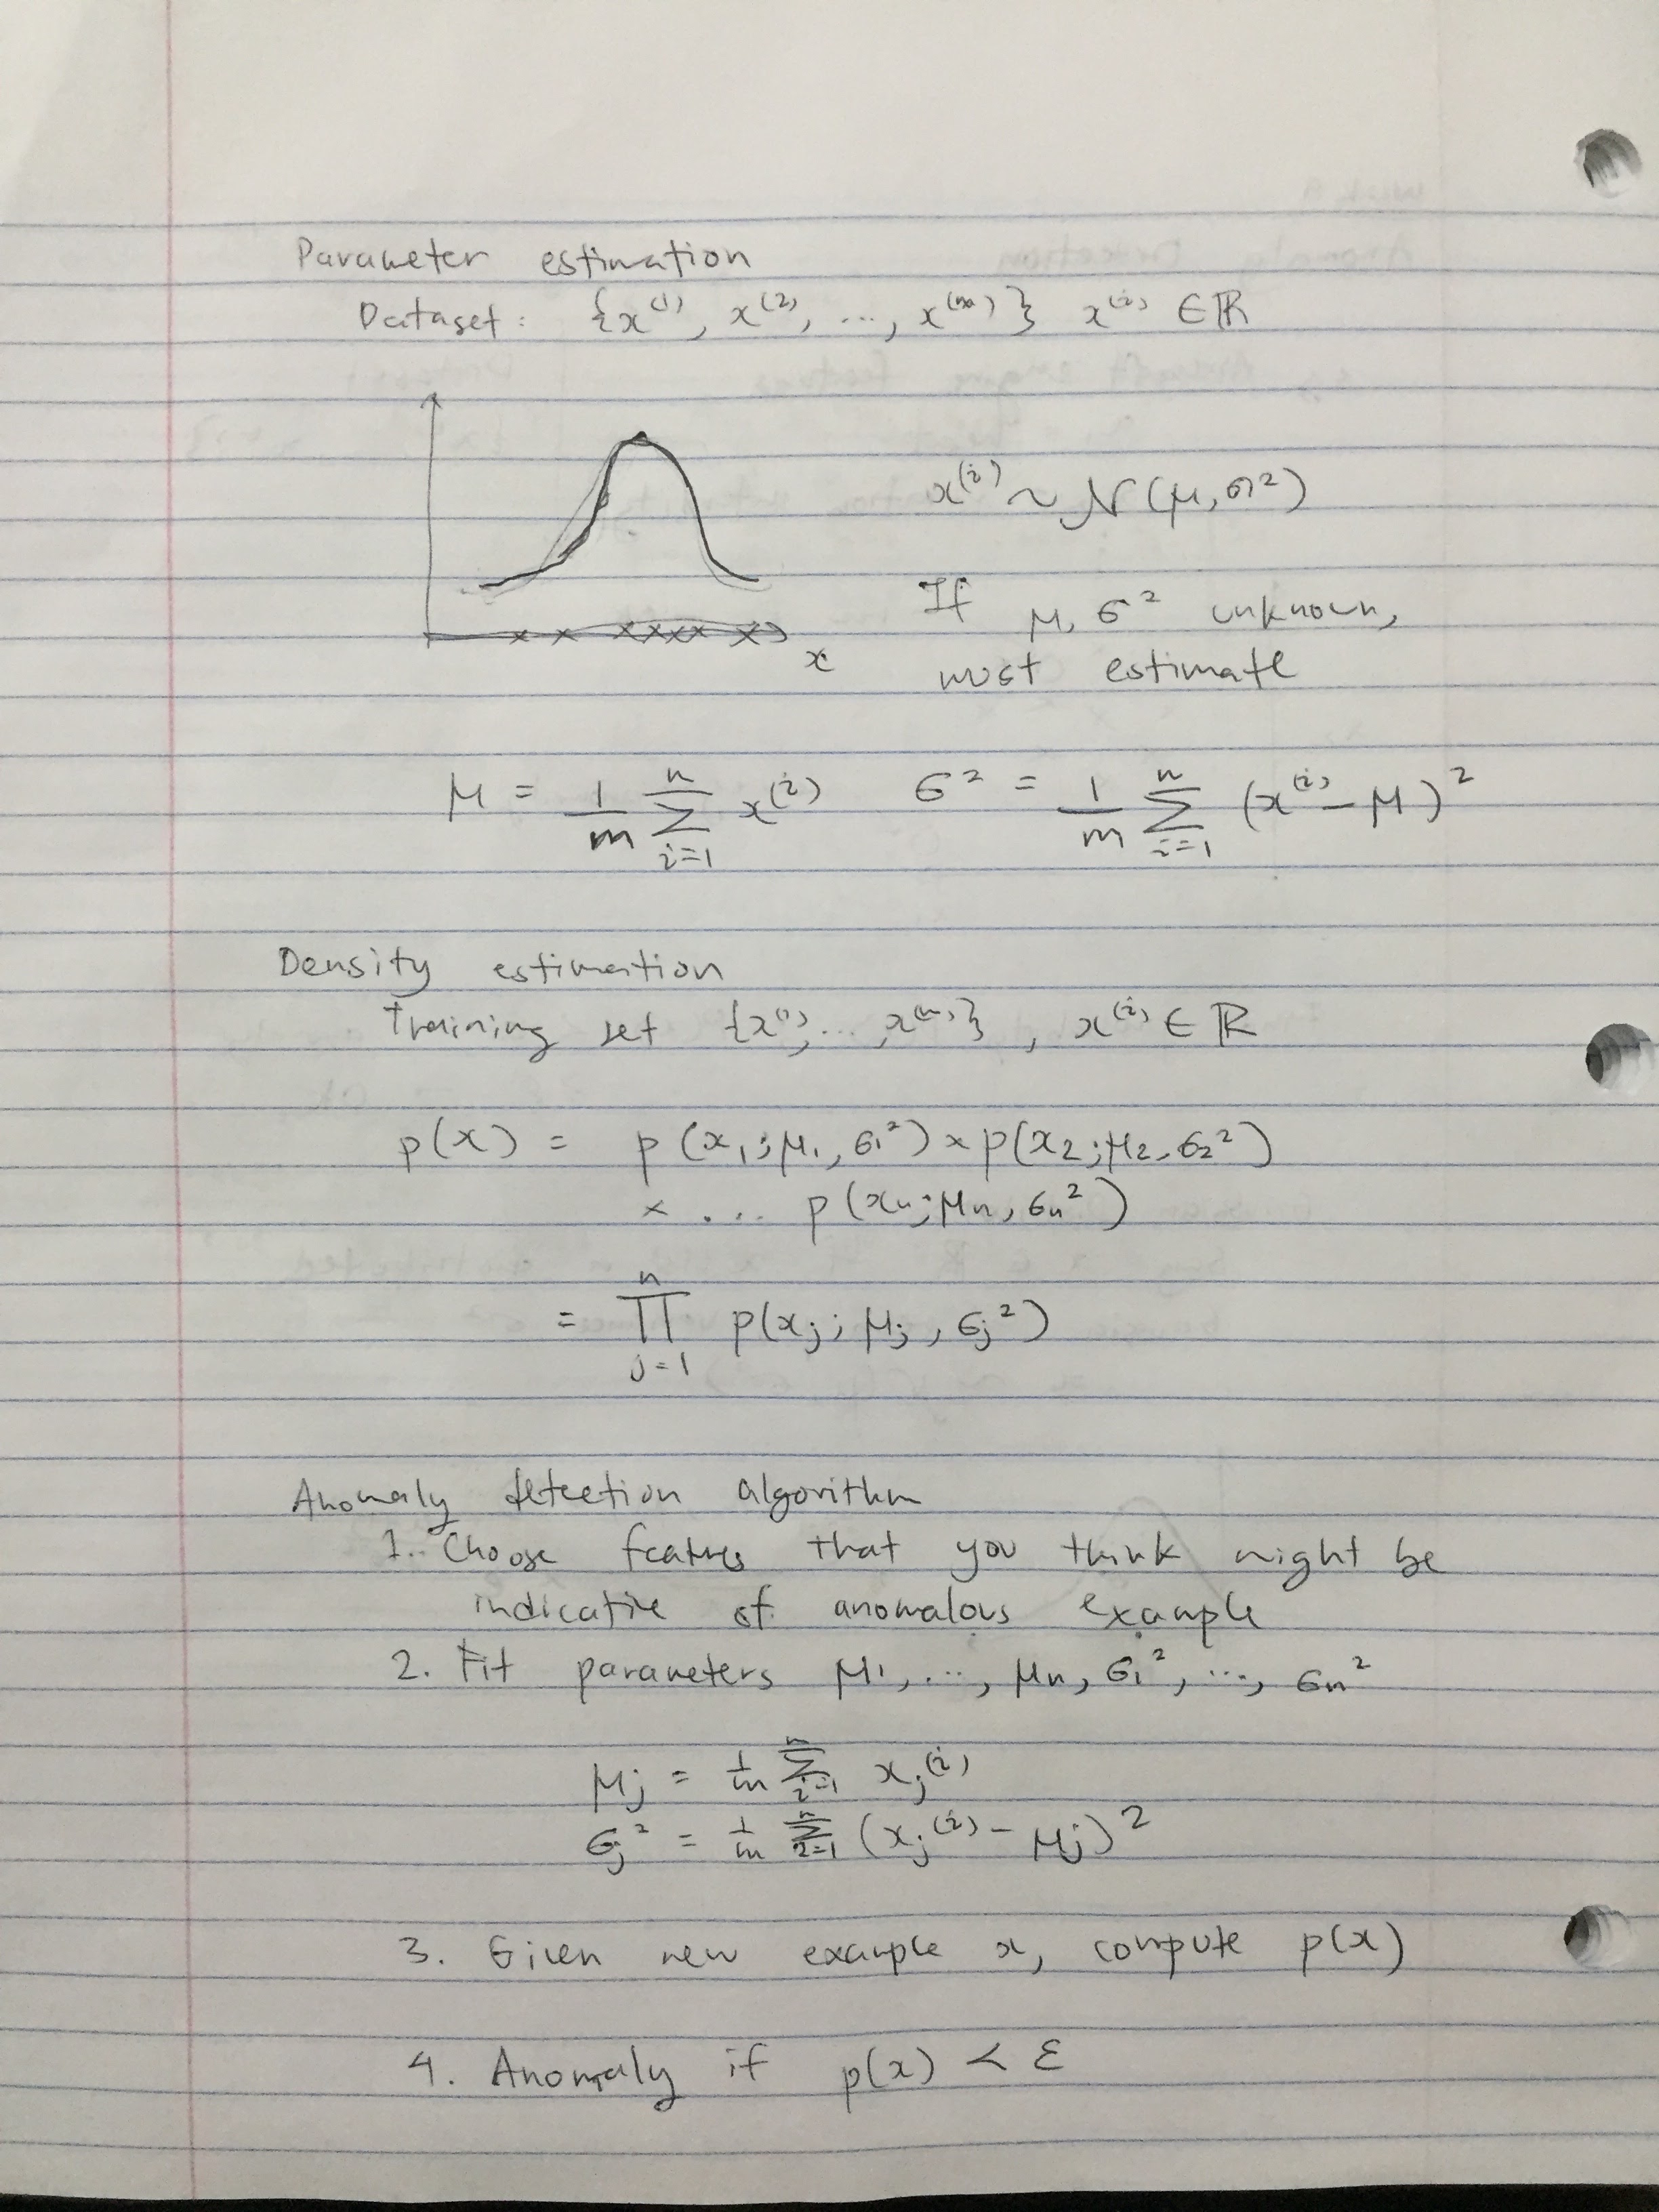 Parameter estimation
Dataset: {x^(1), x^(2), ..., x^(m)} x^(i) ∈ ℝ
x^(i) ~ N(μ, σ²)
If μ, σ² unknown,
must estimate
x
μ = 1/m Σ_{i=1}^{n} x^(i) σ² = 1/m Σ_{i=1}^{n} (x^(i) − μ)²
Density estimation
Training set {x^(1), ..., x^(m)}, x^(i) ∈ ℝ
p(x) = p(x₁; μ₁, σ₁²) × p(x₂; μ₂, σ₂²)
× ... p(xₙ; μₙ, σₙ²)
= ∏_{j=1}^{n} p(x_j; μ_j, σ_j²)
Anomaly detection algorithm
1. Choose features that you think might be
indicative of anomalous example
2. Fit parameters μ₁, ..., μₙ, σ₁², ..., σₙ²
μ_j = 1/m Σ_{i=1}^{n} x_j^(i)
σ_j² = 1/m Σ_{i=1}^{n} (x_j^(i) − μ_j)²
3. Given new example x, compute p(x)
4. Anomaly if p(x) < ε